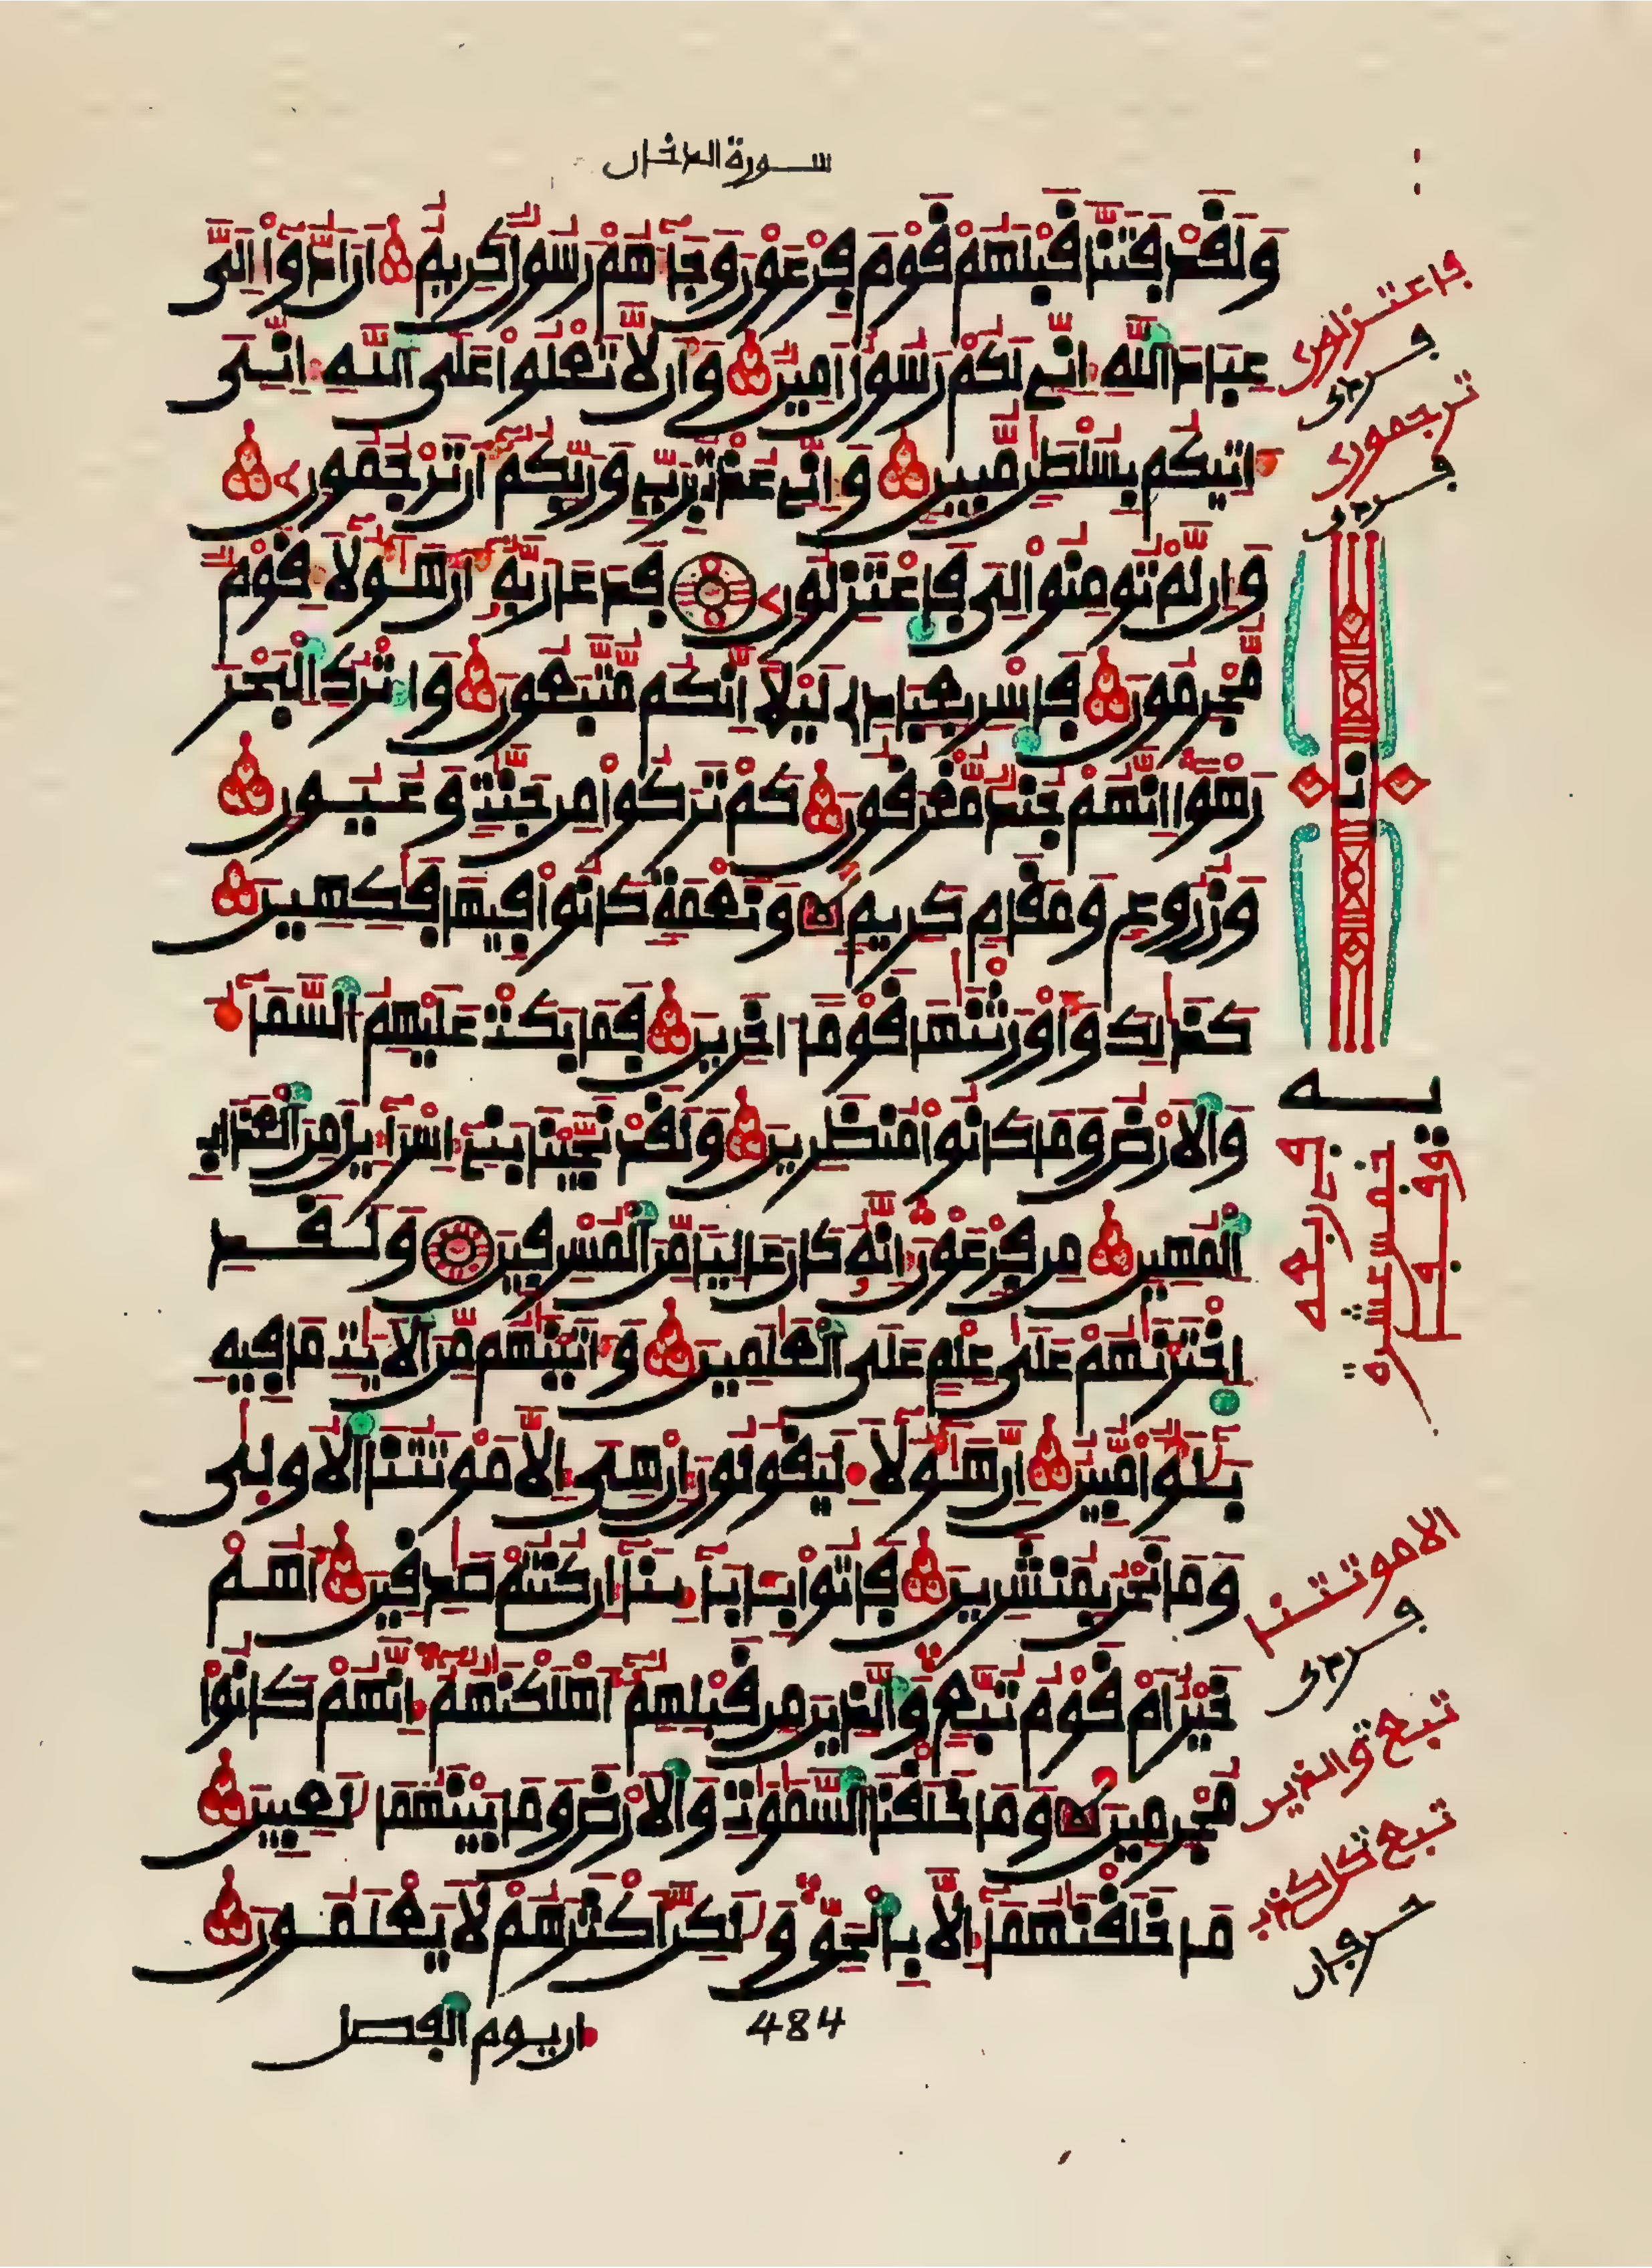 سورة الدخان
وَلَقَدْ فَتَنَّا قَبْلَهُمْ قَوْمَ فِرْعَوْنَ وَجَآءَهُمْ رَسُولٞ كَرِيمٌ اَنَ اَدُّوٓاْ إِلَيَّ
عِبَادَ اَللَّهِ إِنِّے لَكُمْ رَسُولٌ اَمِينٞ وَأَن لَّا تَعْلُواْ عَلَى اَللَّهِ إِنِّيَ
ءَاتِيكُم بِسُلْطَٰنٖ مُّبِينٖ وَإِنِّے عُذْتُ بِرَبِّے وَرَبِّكُمُۥٓ أَن تَرْجُمُونِۦ
وَإِن لَّمْ تُومِنُواْ لِے فَاعْتَزِلُونِۦ فَدَعَا رَبَّهُۥٓ أَنَّ هَٰٓؤُلَآءِ قَوْمٞ
مُّجْرِمُونَ فَاسْرِ بِعِبَادِے لَيْلاً اِنَّكُم مُّتَّبَعُونَ وَاتْرُكِ اِلْبَحْرَ
رَهْواً اِنَّهُمْ جُندٞ مُّغْرَقُونَ كَمْ تَرَكُواْ مِن جَنَّٰتٖ وَعُيُونٖ
وَزُرُوعٖ وَمَقَامٖ كَرِيمٖ وَنَعْمَةٖ كَانُواْ فِيهَا فَٰكِهِينَ
كَذَٰلِكَ وَأَوْرَثْنَٰهَا قَوْماً اٰخَرِينَ فَمَا بَكَتْ عَلَيْهِمُ اُلسَّمَآءُ
وَالَارْضُ وَمَا كَانُواْ مُنظَرِينَ وَلَقَدْ نَجَّيْنَا بَنِے إِسْرَآءِيلَ مِنَ اَلْعَذَابِ
اِلْمُهِينِ مِن فِرْعَوْنَ إِنَّهُۥ كَانَ عَالِياٗ مِّنَ اَلْمُسْرِفِينَ وَلَقَدِ
اِخْتَرْنَٰهُمْ عَلَىٰ عِلْمٍ عَلَى اَلْعَٰلَمِينَ وَءَاتَيْنَٰهُم مِّنَ اَلَايَٰتِ مَا فِيهِ
بَلَٰٓؤٞاْ مُّبِينٌ إِنَّ هَٰٓؤُلَآءِ لَيَقُولُونَ إِنْ هِيَ إِلَّا مَوْتَتُنَا اَلُاولَىٰ
وَمَا نَحْنُ بِمُنشَرِينَ فَاتُواْ بِـَٔابَآئِنَآ إِن كُنتُمْ صَٰدِقِينَ أَهُمْ
خَيْرٌ اَمْ قَوْمُ تُبَّعٖ وَالذِينَ مِن قَبْلِهِمُۥٓ أَهْلَكْنَٰهُمُۥٓ إِنَّهُمْ كَانُواْ
مُجْرِمِينَ وَمَا خَلَقْنَا اَلسَّمَٰوَٰتِ وَالَارْضَ وَمَا بَيْنَهُمَا لَٰعِبِينَ
مَا خَلَقْنَٰهُمَآ إِلَّا بِالْحَقِّ وَلَٰكِنَّ أَكْثَرَهُمْ لَا يَعْلَمُونَ
484
إن يوم الفصل
فاعتزلون
ترجمون
الا موتتنا
تبع والذين